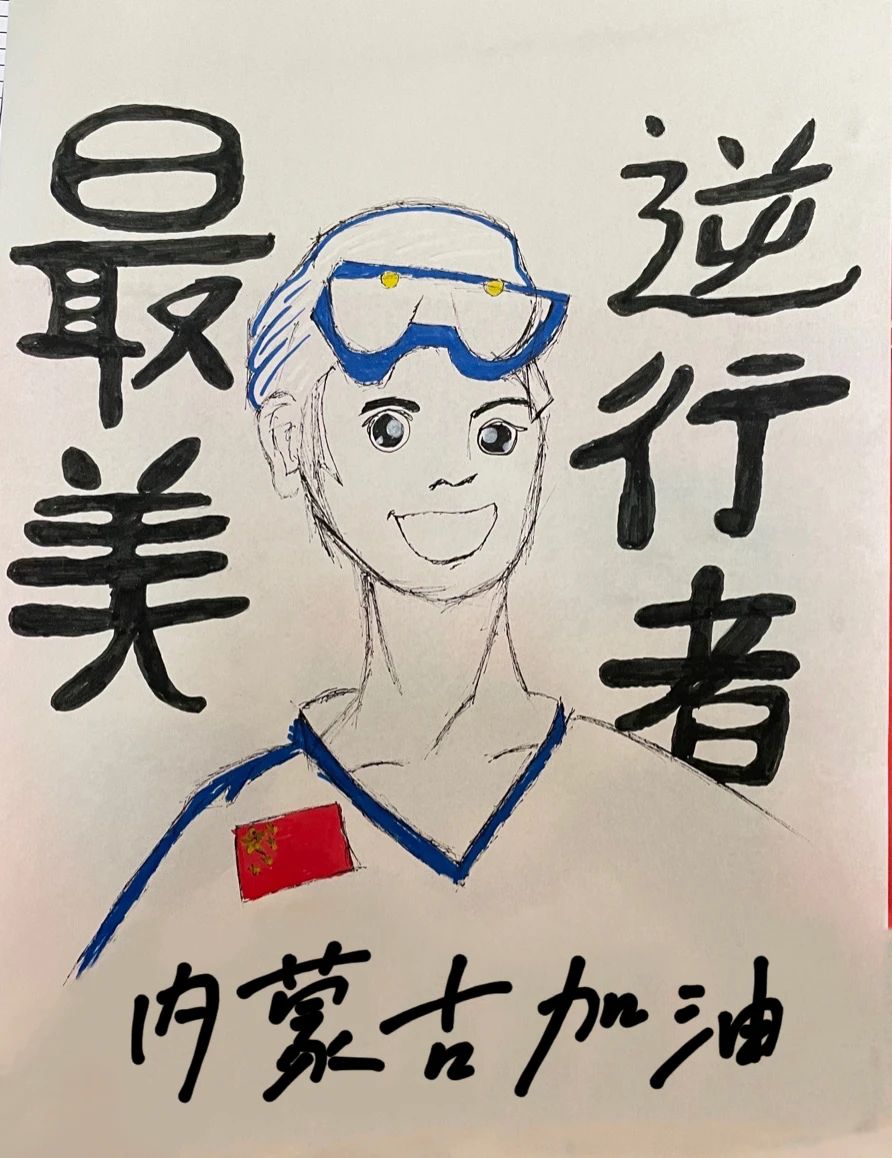 最美
逆行者
内蒙古加油